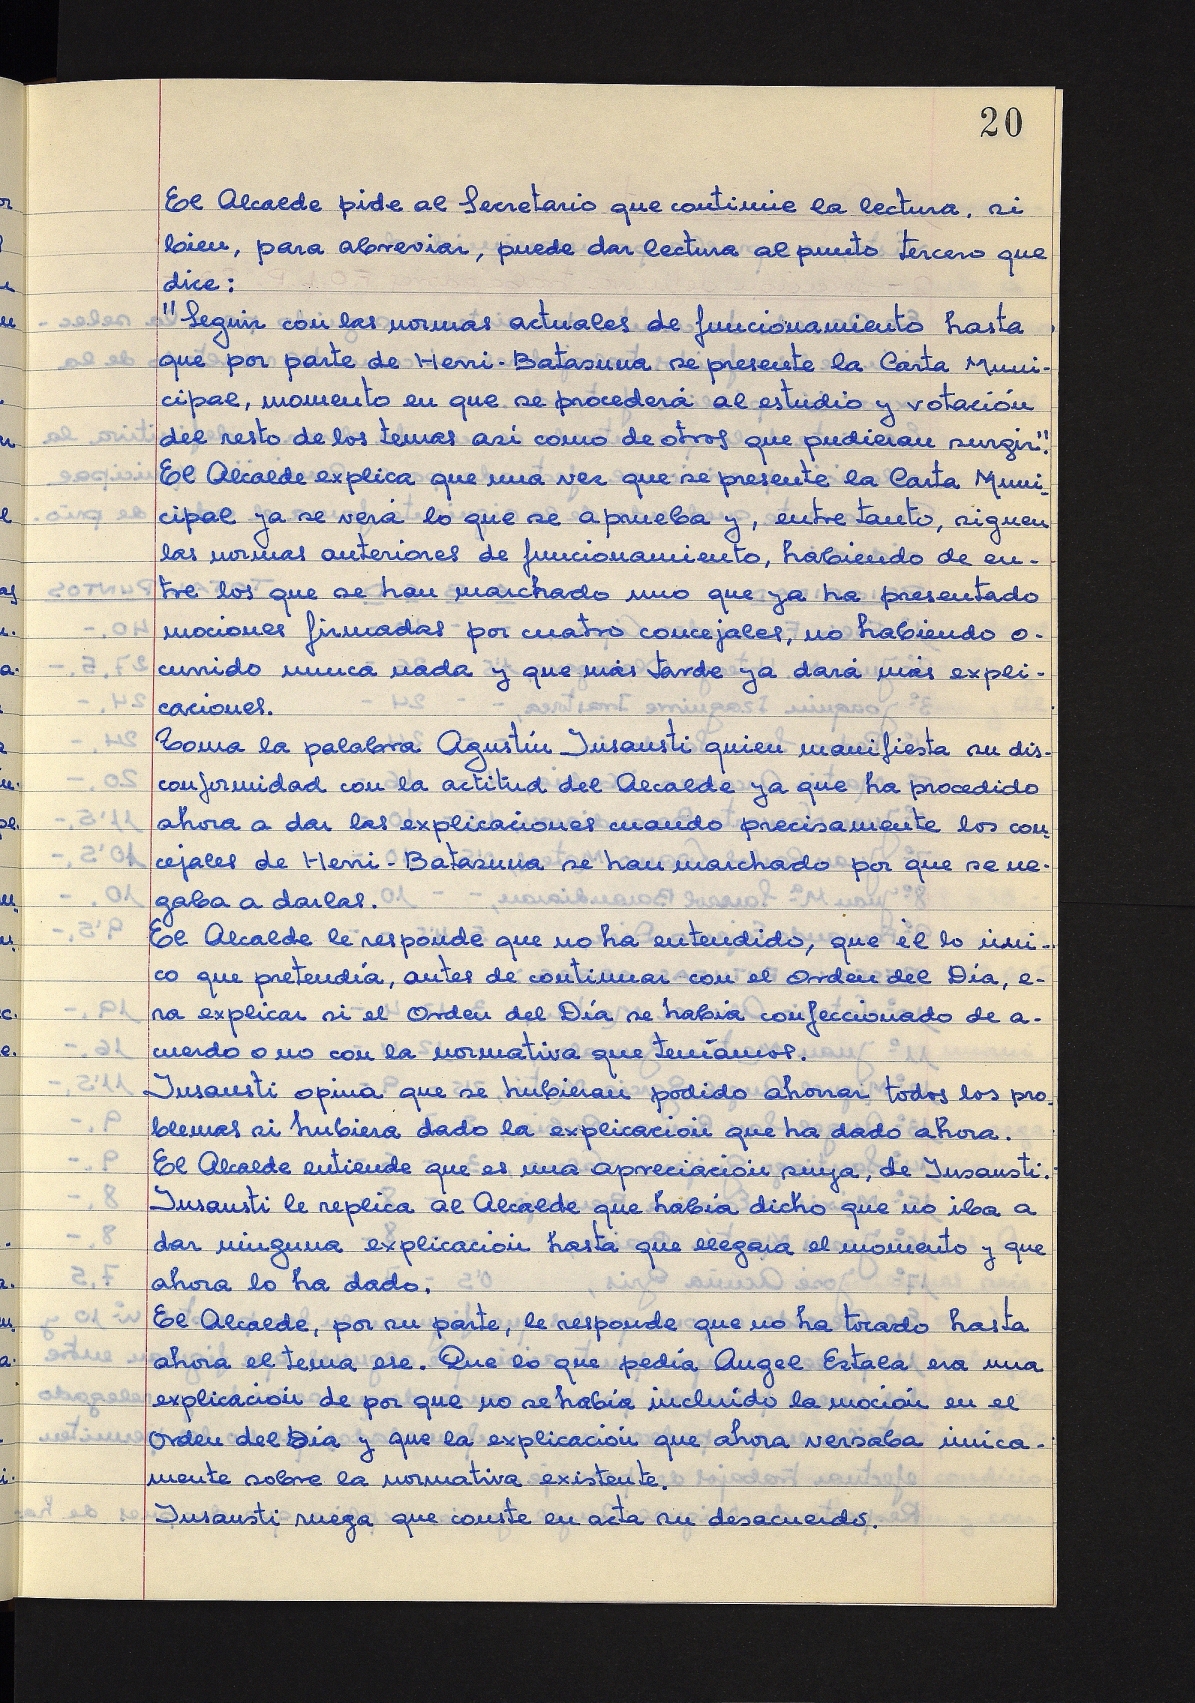 20
El Alcalde pide al Secretario que continúe la lectura, si
bien, para abreviar, puede dar lectura al punto tercero que
dice:
"Seguir con las normas actuales de funcionamiento hasta
que por parte de Herri-Batasuna se presente la Carta Muni-
cipal, momento en que se procederá al estudio y votación
del resto de los temas así como de otros que pudieran surgir".
El Alcalde explica que una vez que se presente la Carta Muni-
cipal ya se verá lo que se aprueba y, entre tanto, siguen
las normas anteriores de funcionamiento, habiendo de en-
tre los que se han marchado uno que ya ha presentado
mociones firmadas por cuatro concejales, no habiendo o-
currido nunca nada y que más tarde ya dará más expli-
caciones.
Toma la palabra Agustín Insausti quien manifiesta su dis-
conformidad con la actitud del Alcalde ya que ha procedido
ahora a dar las explicaciones cuando precisamente los con-
cejales de Herri-Batasuna se han marchado por que se ne-
gaba a darlas.
El Alcalde le responde que no ha entendido, que él lo úni-
co que pretendía, antes de continuar con el Orden del Día, e-
ra explicar si el Orden del Día se había confeccionado de a-
cuerdo o no con la normativa que teníamos.
Insausti opina que se hubieran podido ahorrar todos los pro-
blemas si hubiera dado la explicación que ha dado ahora.
El Alcalde entiende que es una apreciación suya, de Insausti.
Insausti le replica al Alcalde que había dicho que no iba a
dar ninguna explicación hasta que llegara el momento y que
ahora lo ha dado.
El Alcalde, por su parte, le responde que no ha tocado hasta
ahora el tema ese. Que lo que pedía Angel Estala era una
explicación de por que no se había incluído la moción en el
Orden del Día y que la explicación que ahora versaba única-
mente sobre la normativa existente.
Insausti ruega que conste en acta su desacuerdo.